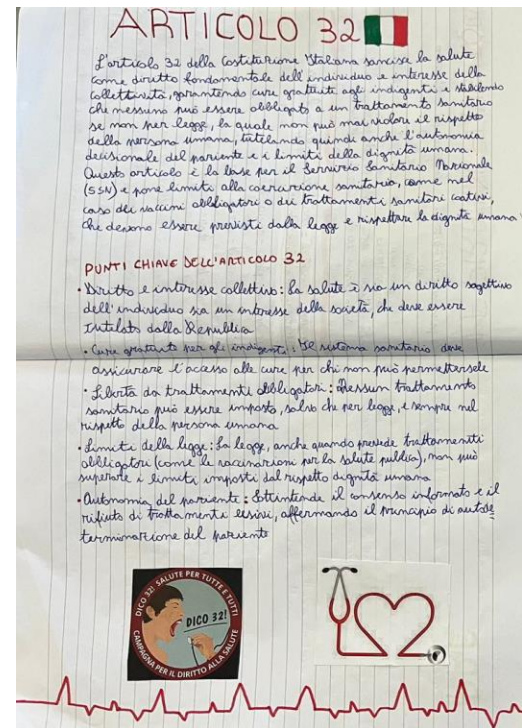 ARTICOLO 32
L'articolo 32 della Costituzione Italiana sancisce la salute
come diritto fondamentale dell'individuo e interesse della
collettività, garantendo cure gratuite agli indigenti e stabilendo
che nessuno può essere obbligato a un trattamento sanitario
se non per legge, la quale non può mai violare il rispetto
della persona umana, tutelando quindi anche l'autonomia
decisionale del paziente e i limiti della dignità umana.
Questo articolo è la base per il Servizio Sanitario Nazionale
(SSN) e pone limiti alla coercizione sanitaria, come nel
caso dei vaccini obbligatori o dei trattamenti sanitari coattivi,
che devono essere previsti dalla legge e rispettare la dignità umana.
PUNTI CHIAVE DELL'ARTICOLO 32
• Diritto e interesse collettivo: La salute è sia un diritto soggettivo
dell'individuo sia un interesse della società, che deve essere
tutelato dalla Republica
• Cure gratuite per gli indigenti: Il sistema sanitario deve
assicurare l'accesso alle cure per chi non può permettersele
• Libertà da trattamenti obbligatori: Nessun trattamento
sanitario può essere imposto, salvo che per legge, e sempre nel
rispetto della persona umana
• Limiti della legge: La legge, anche quando prevede trattamenti
obbligatori (come le vaccinazioni per la salute publica), non può
superare i limiti imposti dal rispetto dignità umana
• Autonomia del paziente: Sottintende il consenso informato e il
rifiuto di trattamenti lesivi, affermando il principio di autode
terminazione del paziente
DICO 32! SALUTE PER TUTTE E TUTTI
DICO 32!
CAMPAGNA PER IL DIRITTO ALLA SALUTE